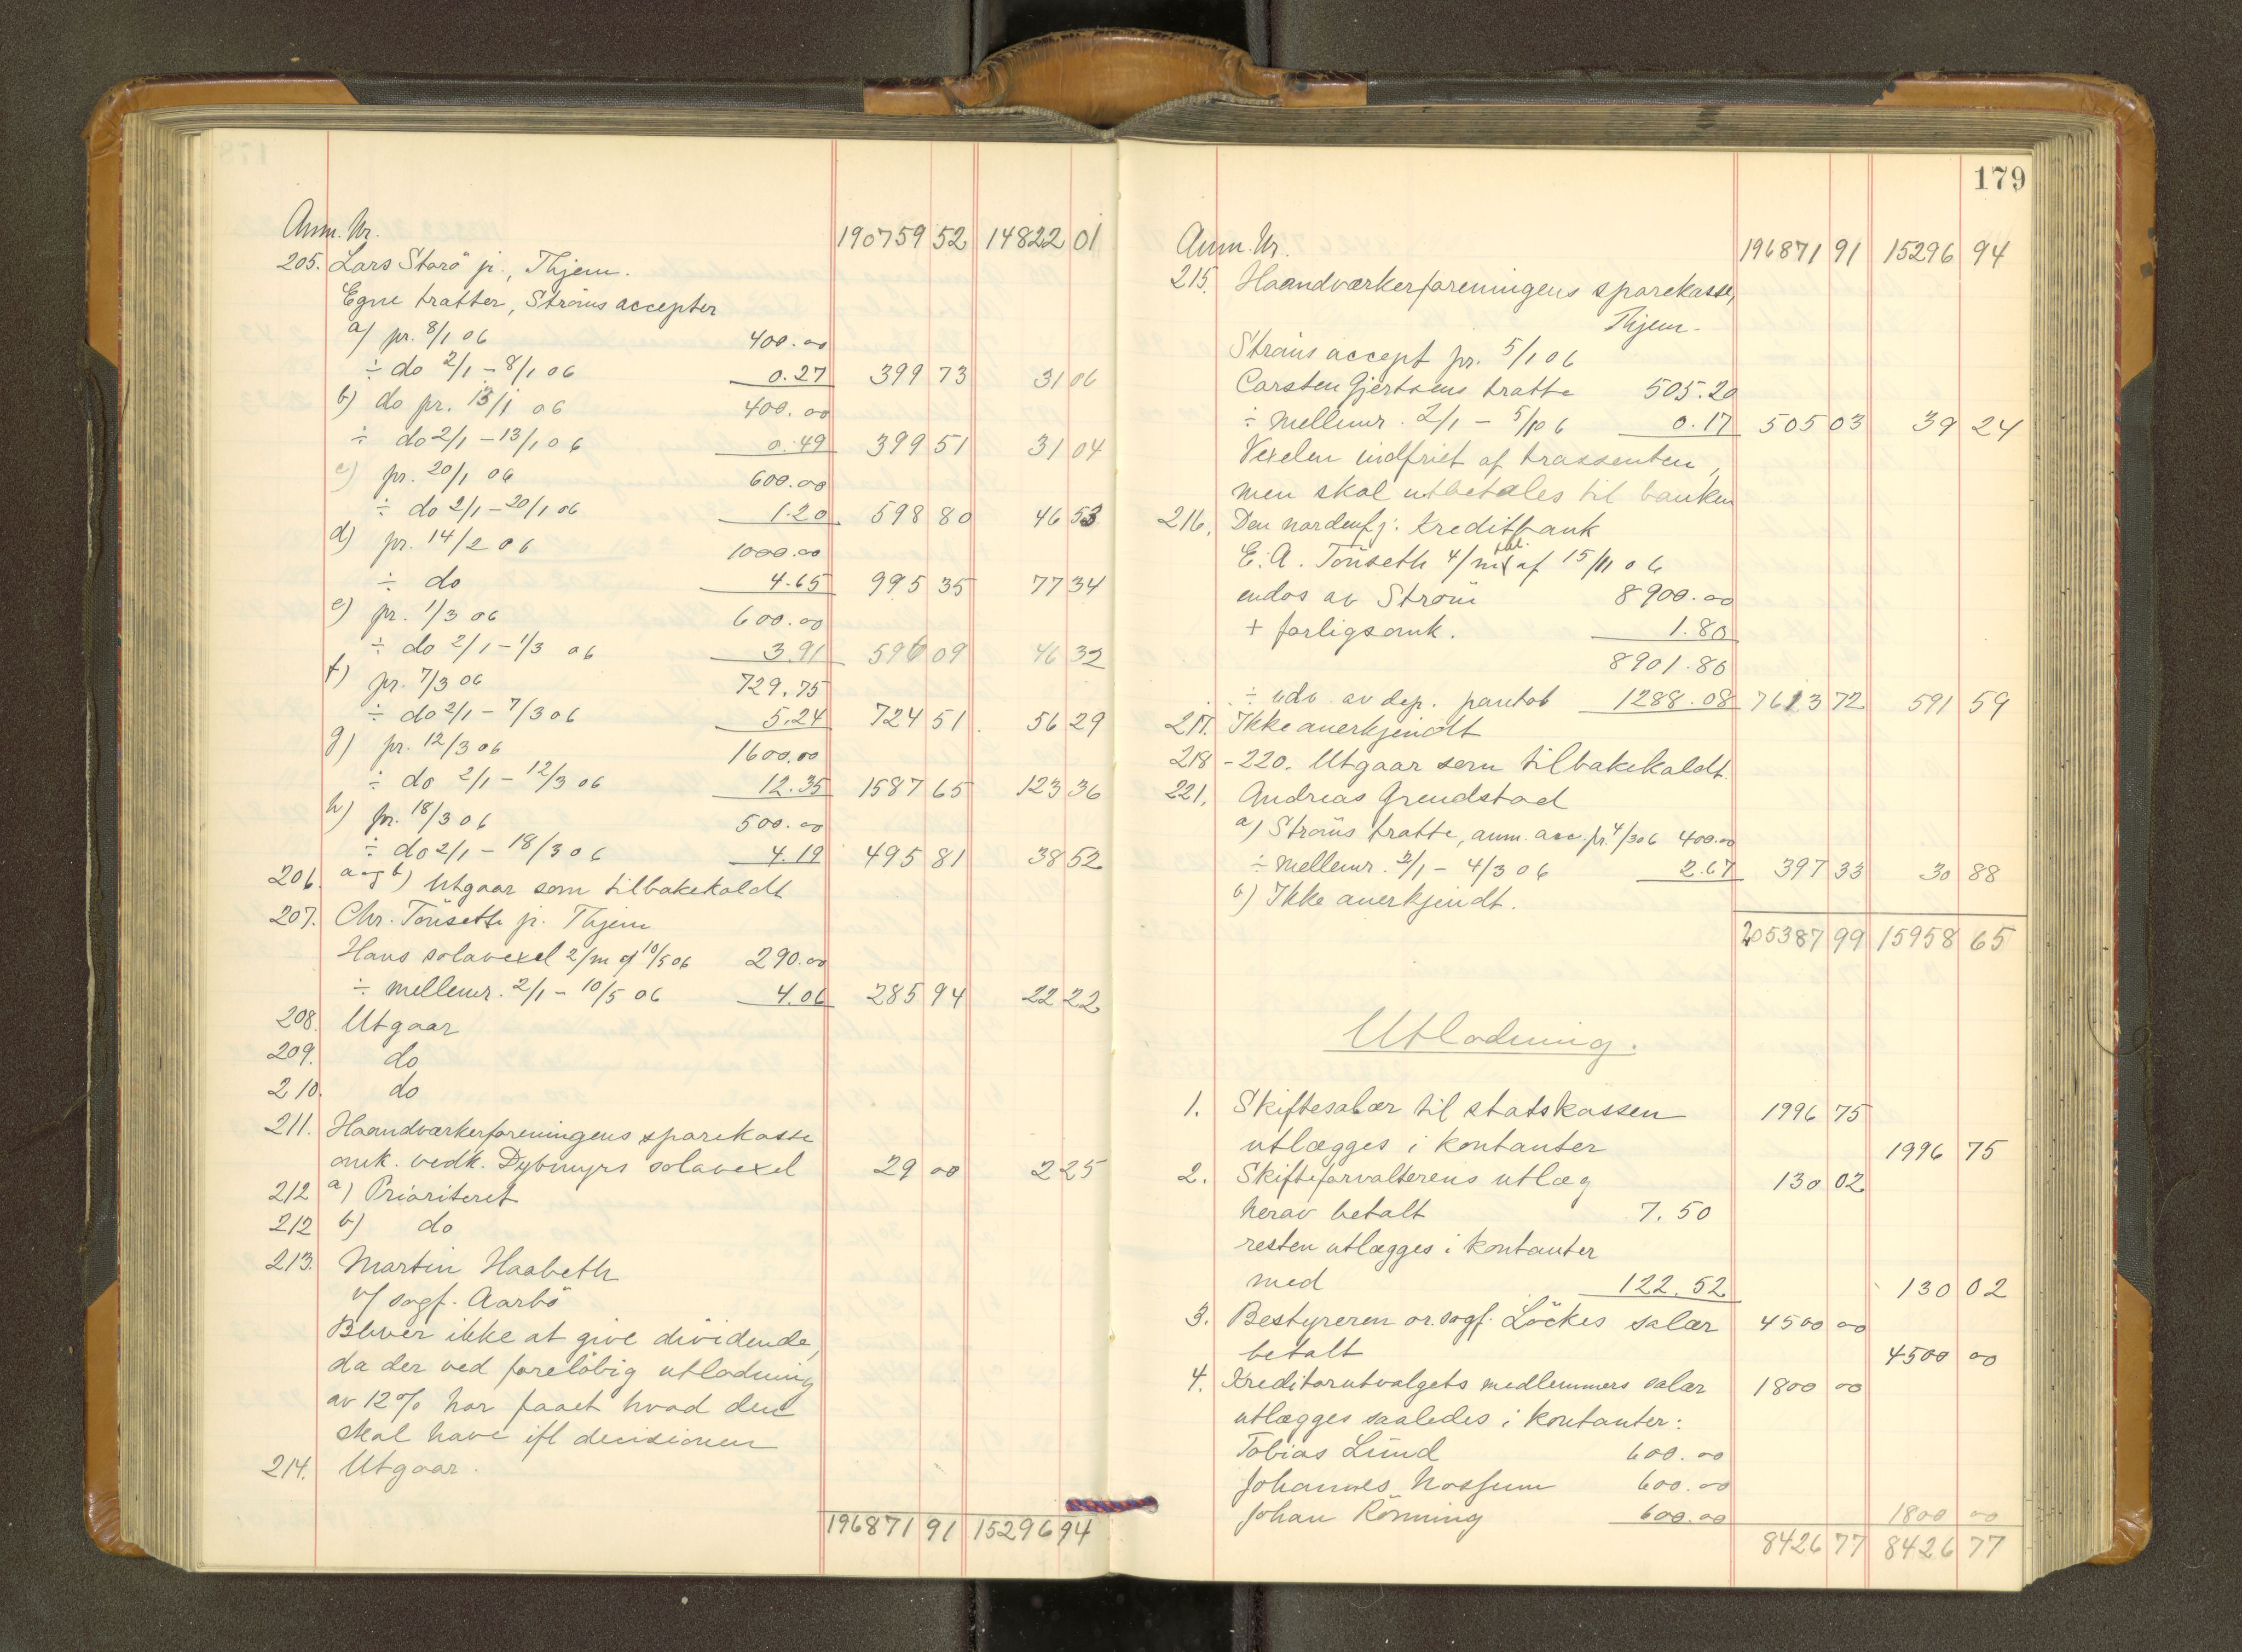 Anm. Nr. 190759 52 14822 01
205. Lars Storö jr., Thjem.
Egne tratter, Ströms accepter
a) pr. 8/1 06 400.00
÷ do 2/1 - 8/1 06 0.27 399 73 31 06
b) do pr. 13/1 06 400.00
÷ do 2/1 - 13/1 06 0.49 399 51 31 04
c) pr. 20/1 06 600.00
÷ do 2/1 - 20/1 06 1.20 598 80 46 53
d) pr. 14/2 06 1000.00
÷ do 4.65 995 35 77 34
e) pr. 1/3 06 600.00
÷ do 2/1 - 1/3 06 3.91 596 09 46 32
f) pr. 7/3 06 729.75
÷ do 2/1 - 7/3 06 5.24 724 51 56 29
g) pr. 12/3 06 1600.00
÷ do 2/1 - 12/3 06 12.35 1587 65 123 36
h) pr. 18/3 06 500.00
÷ do 2/1 - 18/3 06 4.19 495 81 38 52
206. a og b) Utgaar som tilbakekaldt
207. Chr. Tönseth jr. Thjem
Hans solavexel 2/m af 10/5 06 290.00
÷ mellemr. 2/1 - 10/5 06 4.06 285 94 22 22
208. Utgaar
209. do
210. do
211. Haandværkerforeningens sparekasse
omk. vedk. Dybmyrs solavexel 29 00 2 25
212 a) Prioriteret
212 b) do
213. Martin Haabeth
v/ sagf. Aarbö
Bliver ikke at give dividende,
da der ved foreløbig utlodning
av 12% har faaet hvad den
skal have ifl decisionen
214. Utgaar.
196871 91 15296 94
179
Anm. Nr. 196871 91 15296 94
215. Haandværkerforeningens sparekasse,
Thjem.
Ströms accept pr. 5/1 06
Carsten Gjertsens tratte 505.20
÷ mellemr. 2/1 - 5/1 06 0.17 505 03 39 24
Vexelen indfriet af trassenten,
men skal utbetales til banken
216. Den nordenfj. kreditbank
E. A. Tönseth 4/m af 15/11 06
endos av Ström 8900.00
+ forligsomk. 1.80
8901.80
÷ udv av dep. pantob 1288.08 7613 72 591 59
217. Ikke anerkjendt
218 - 220. Utgaar som tilbakekaldt.
221. Andreas Grendstad
a) Ströms tratte, anm. acc. pr. 4/3 06 400.00
÷ mellemr. 2/1 - 4/3 06 2.67 397 33 30 88
b) Ikke anerkjendt.
205387 99 15958 65
Utlodning.
1. Skiftesalær til statskassen 1996 75
utlægges i kontanter 1996 75
2. Skifteforvalterens utlæg 130 02
herav betalt 7.50
resten utlægges i kontanter
med 122.52 130 02
3. Bestyreren or. sagf. Löckes salær 4500 00
betalt 4500 00
4. Kreditorutvalgets medlemmers salær 1800 00
utlægges saaledes i kontanter:
Tobias Lund 600.00
Johannes Mossum 600.00
Johan Rönning 600.00 1800 00
8426 77 8426 77